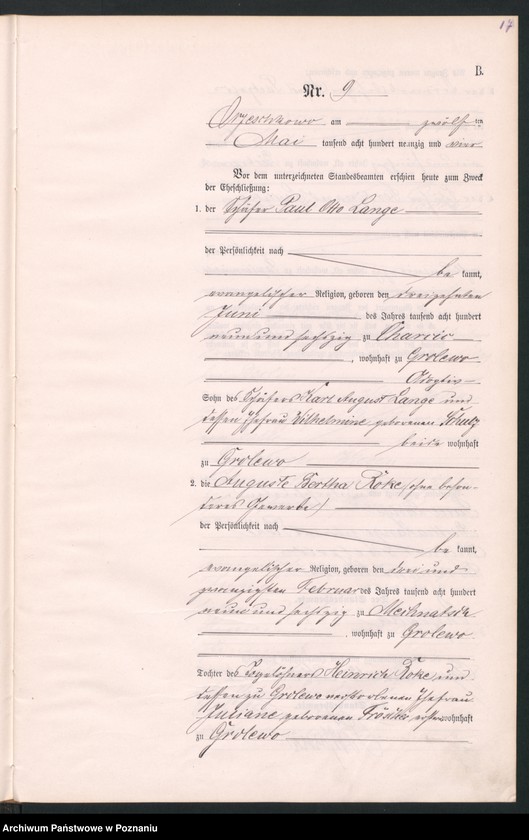 17
B.
Nr. 9
Orzeschkowo am zwölften
Mai tausend acht hundert neunzig und vier
Vor dem unterzeichneten Standesbeamten erschien heute zum Zweck
der Eheschließung:
1. der Schäfer Paul Otto Lange
der Persönlichkeit nach
be kannt,
evangelischer Religion, geboren den dreizehnten
Juni des Jahres tausend acht hundert
neun und sechszig zu Charcic
, wohnhaft zu Grolewo
Adoptiv-
Sohn des Schäfers Karl August Lange und
dessen Ehefrau Wilhelmine geborenen Schulz
beide wohnhaft
zu Grolewo
2. die Auguste Bertha Röke (ohne beson-
deres Gewerbe)
der Persönlichkeit nach
be kannt,
evangelischer Religion, geboren den drei und
zwanzigsten Februar des Jahres tausend acht hundert
neun und sechszig zu
, wohnhaft zu Grolewo
Tochter des Tagelöhners Heinrich Röke und
dessen zu Grolewo verstorbenen Ehefrau
Juliane geborenen wohnhaft
zu Grolewo
Archiwum Państwowe w Poznaniu